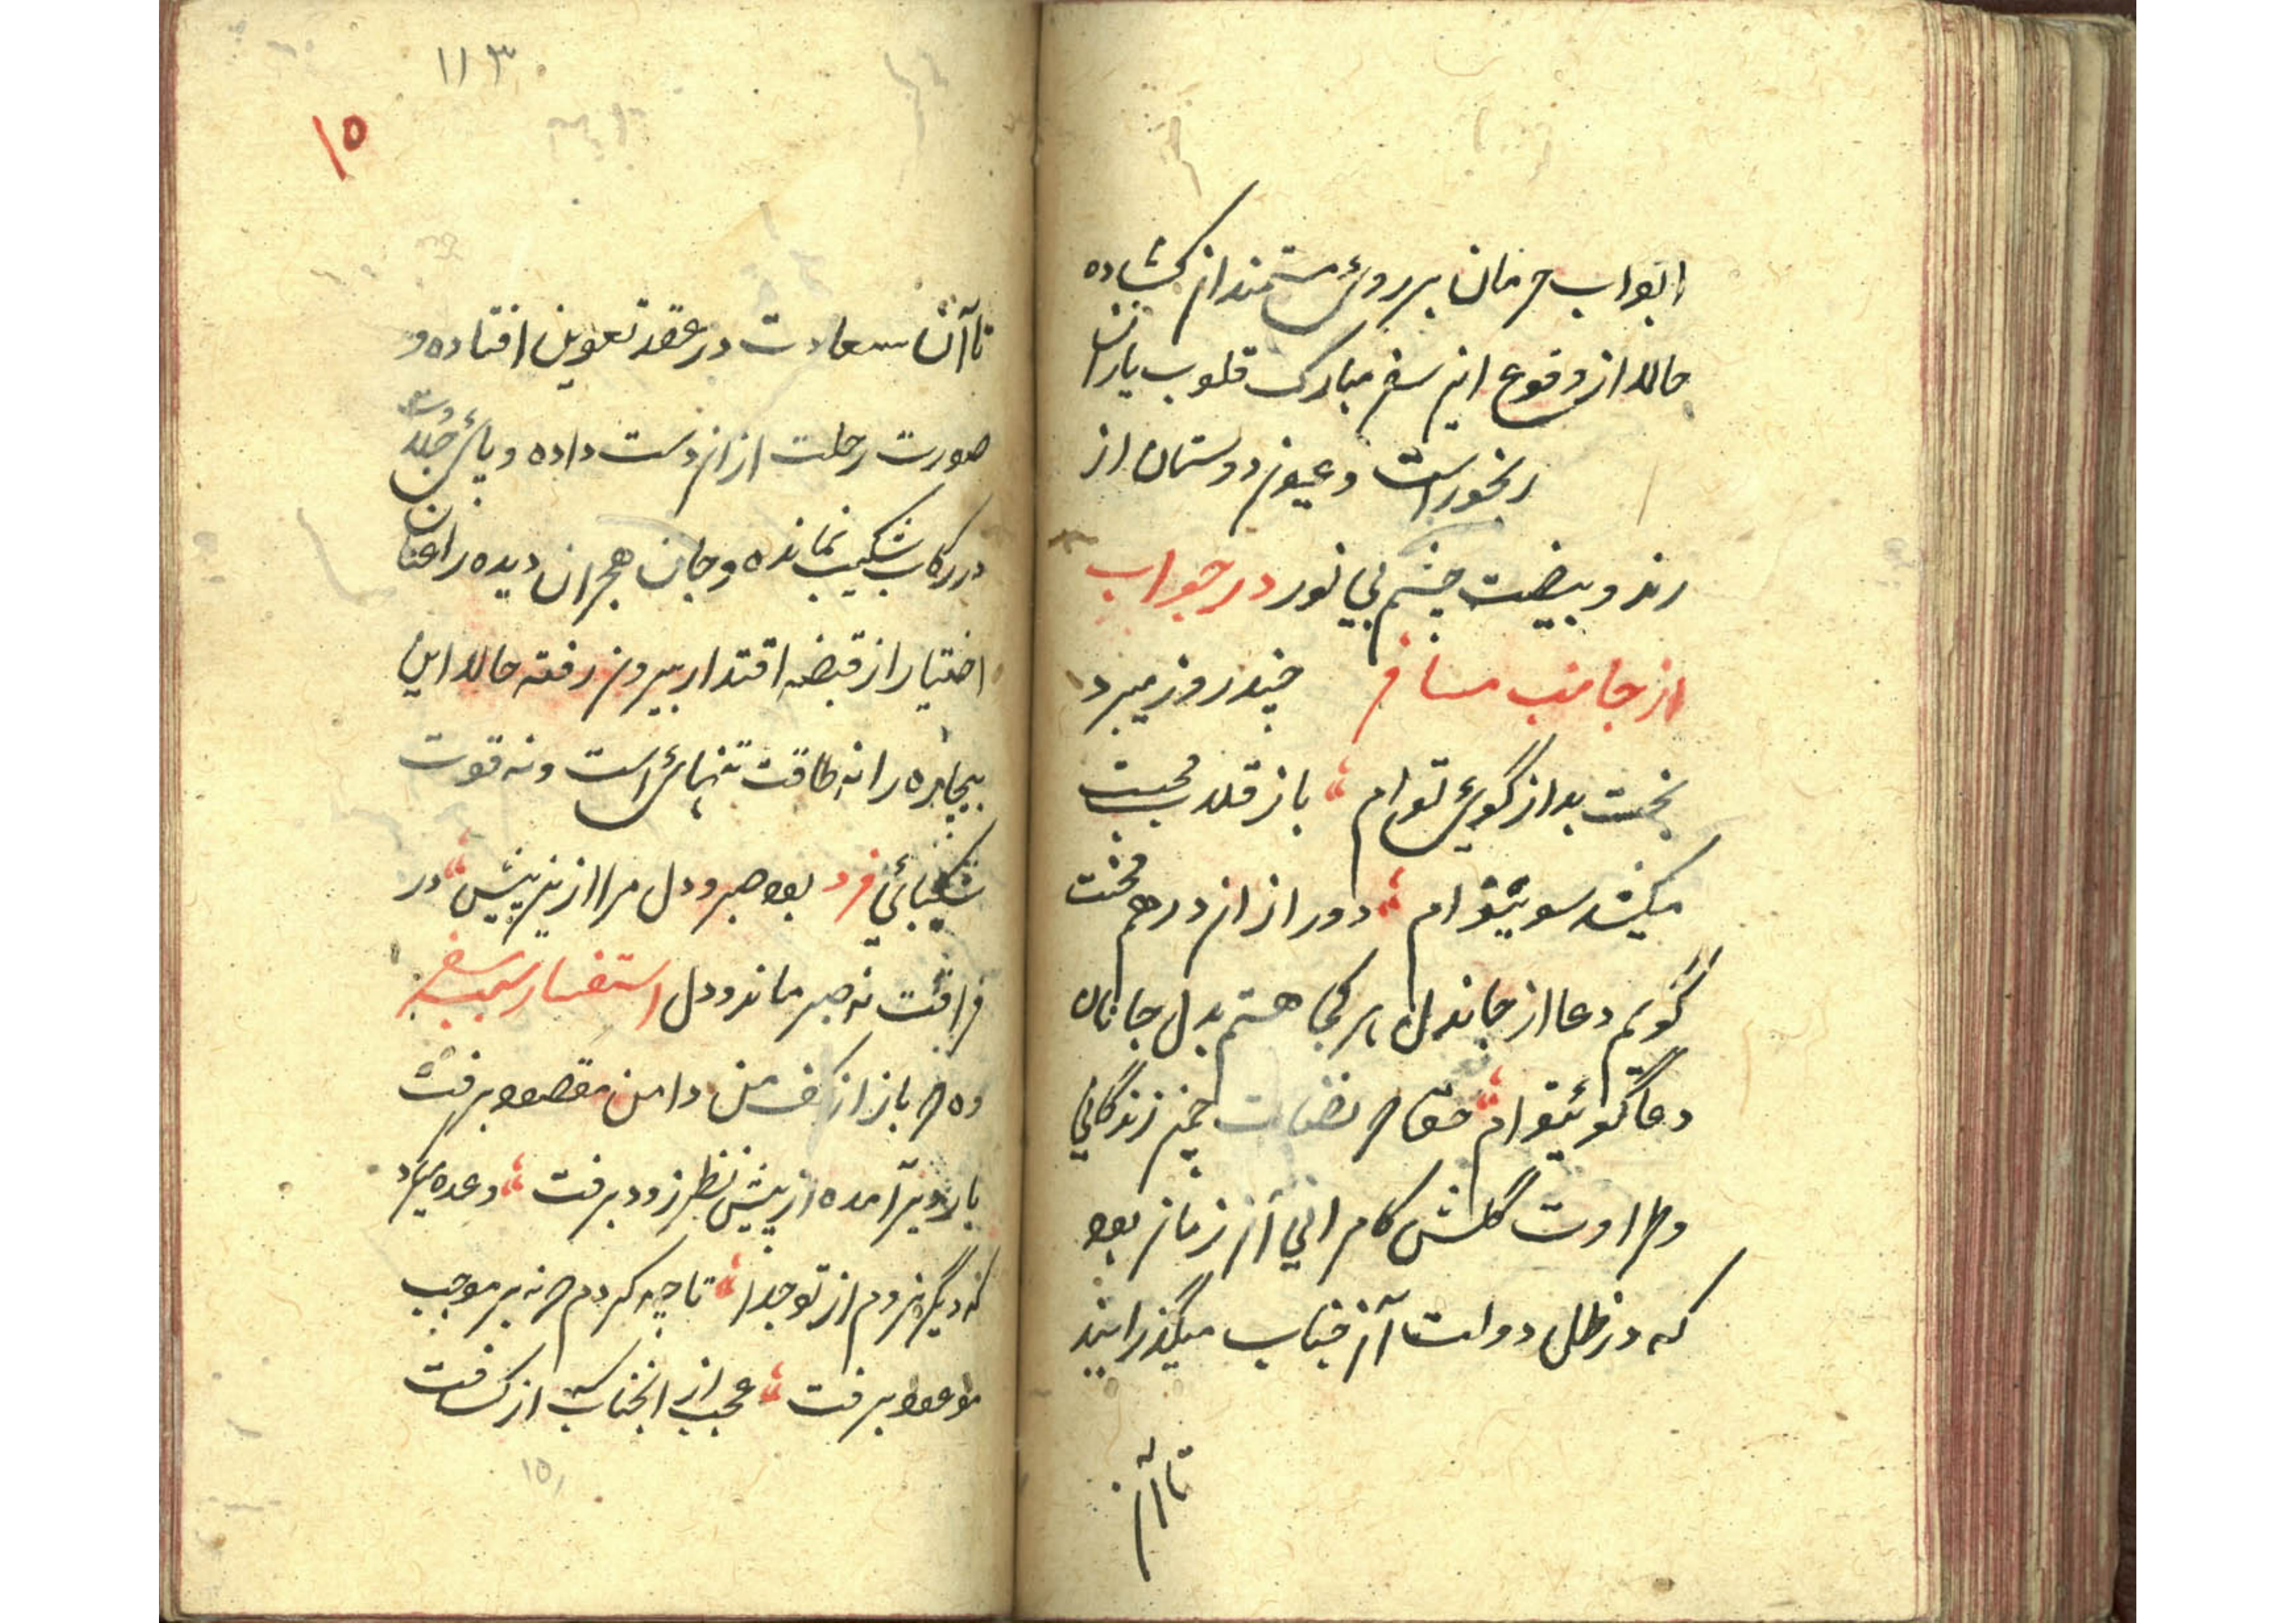 ابواب حرمان بر روی مستمندان کشاده
حالا از وقوع این سفر مبارک قلوب یاران
رنجور است و عیون دوستان از
رمد و بیضت چشم بی نور در جواب
از جانب مسافر چند روز میبرد
بخت بد از کوی توام باز قلاب محبت
میکشد سویتوام دور از آن درهم محنت
گویم دعا از جاندل هر کجا هستم بدل جانان
دعا گوئیتوام حقا که نضارت چمن زندگانی
و طراوت گلشن کامرانی آن زمان بود
که در ظل دولت آن جناب میگذرانید
تا آن
۱۱۳
۱۵
تا آن سعادت در عقد تعویق افتاده و
صورت رحلت از آن دست داده و پای جلادت
در رکاب شکیب نمانده و جان هجران دیده را عنان
اختیار از قبضه اقتدار بیرون رفته حالا این
بیچاره را نه طاقت تنهائی است و نه قوت
شکیبائی فرد بود صبر و دل مرا ازین پیش در
فراقت نه صبر ماند و دل استفسار سبب سفر
وه که باز از کف من دامن مقصود برفت
یار دیر آمده از پیش نظر زود برفت وعده میکرد
که دیگر نروم از تو جدا تا چه کردم که نه بر موجب
موعود برفت عجب از انجناب که از کسافت
۱۵۱